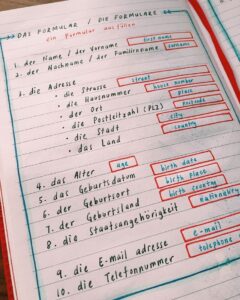 DAS FORMULAR / DIE FORMULARE
ein Formular ausfüllen
1. der Name / der Vorname first name
2. der Nachname / der Familienname surname
3. die Adresse
• die Strasse street
• die Hausnummer house number
• der Ort place
• die Postleitzahl (PLZ) postcode
• die Stadt city
• das Land country
4. das Alter age
5. das Geburtsdatum birth date
6. der Geburtsort birth place
7. der Geburtsland birth country
8. die Staatsangehörigkeit
9. die E-mail adresse e-mail
10. die Telefonnummer telephone